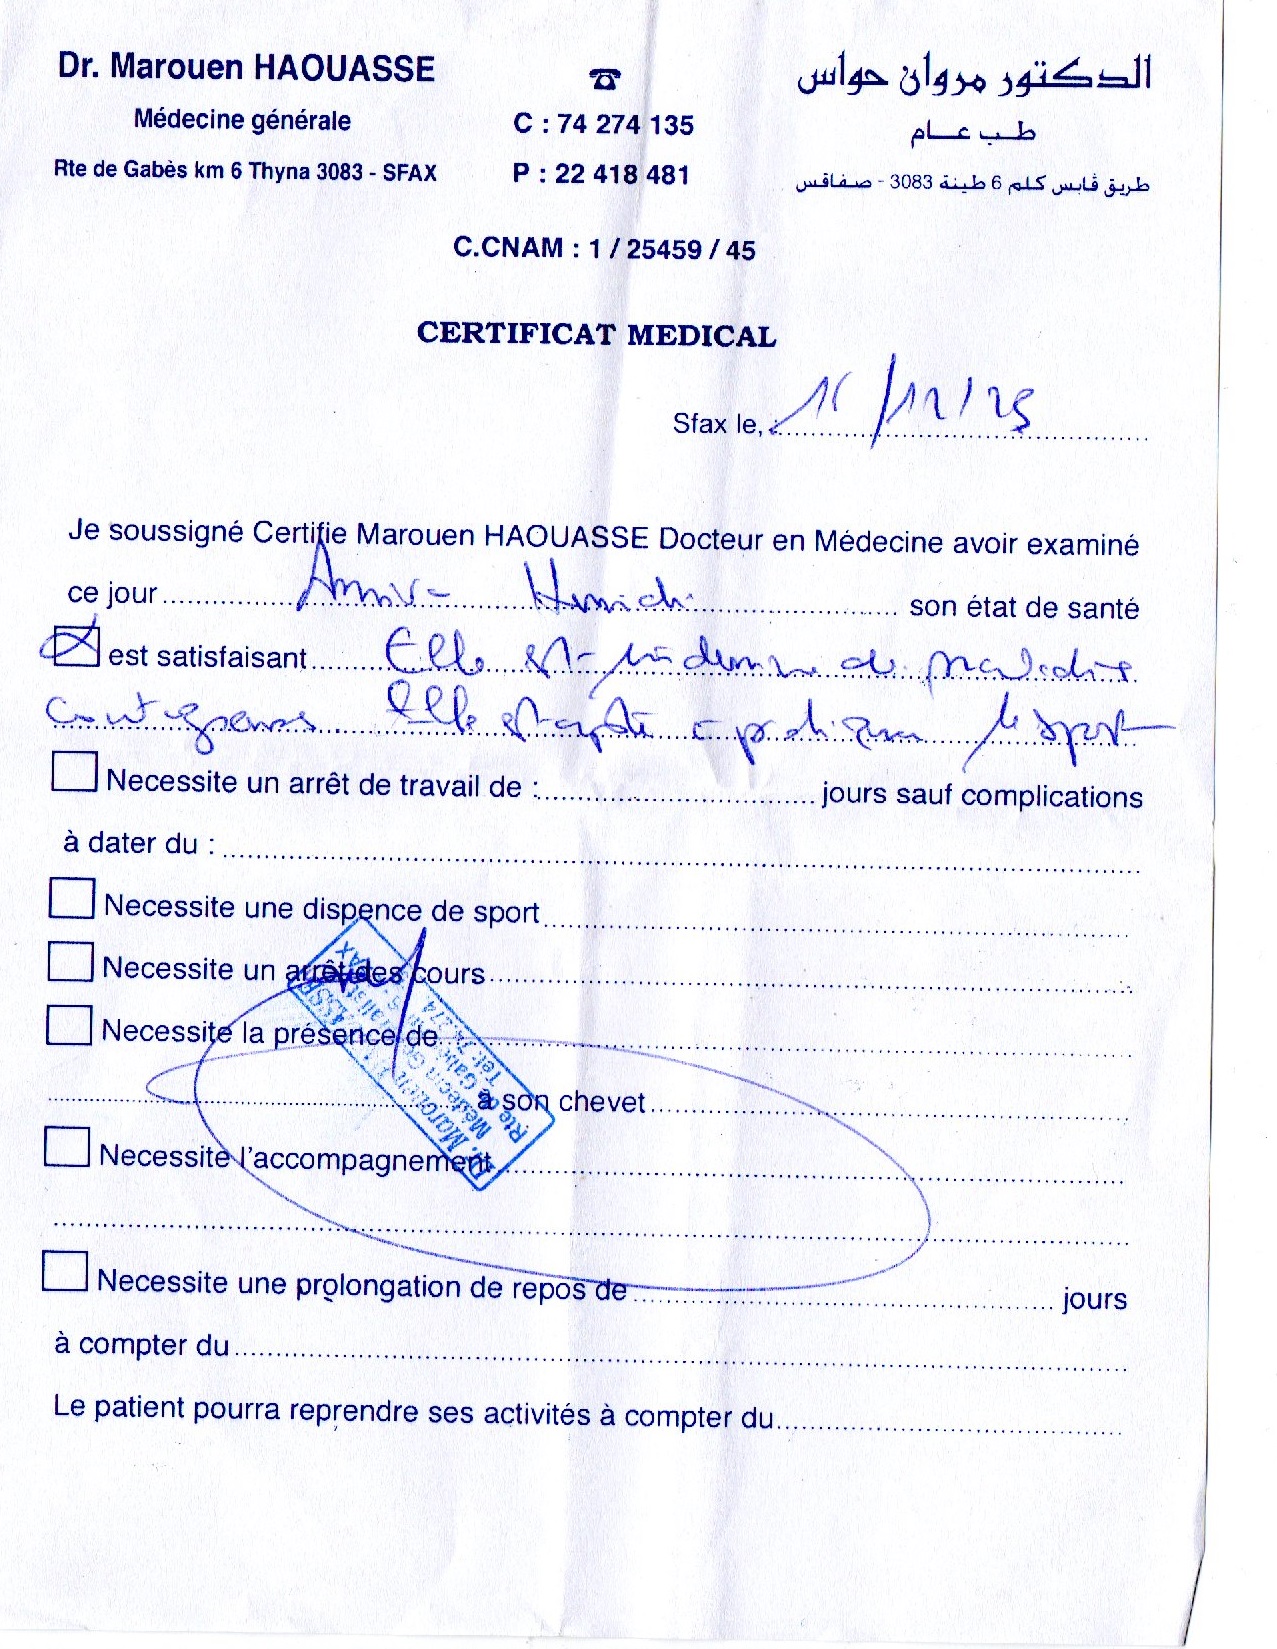 Dr. Marouen HAOUASSE
Médecine générale
Rte de Gabès km 6 Thyna 3083 - SFAX
C : 74 274 135
P : 22 418 481
الدكتور مروان حواس
طب عام
طريق ڤابس كلم 6 طينة 3083 - صفاقس
C.CNAM : 1 / 25459 / 45
CERTIFICAT MEDICAL
Sfax le, 16/12/25
Je soussigné Certifie Marouen HAOUASSE Docteur en Médecine avoir examiné
ce jour son état de santé
est satisfaisant Elle est indemne de maladie
contagieuse Elle est apte à pratiquer le sport
Necessite un arrêt de travail de : jours sauf complications
à dater du :
Necessite une dispence de sport
Necessite un arrêt des cours
Necessite la présence de
à son chevet
Necessite l'accompagnement
Necessite une prolongation de repos de jours
à compter du
Le patient pourra reprendre ses activités à compter du